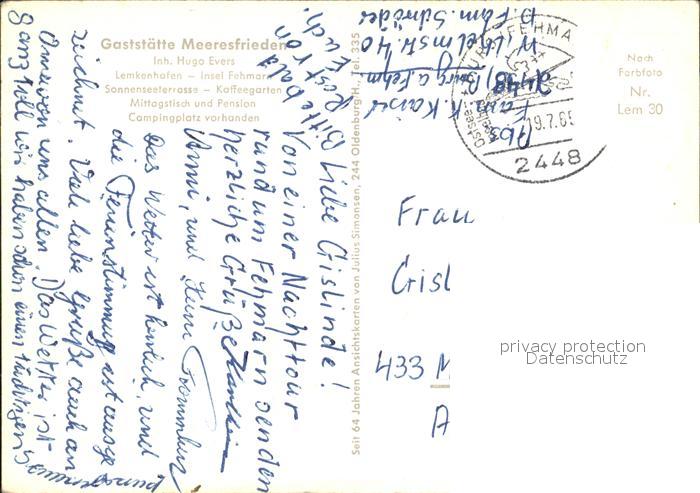 Gaststätte Meeresfrieden
Inh. Hugo Evers
Lemkenhafen – Insel Fehmarn
Sonnenseeterrasse – Kaffeegarten
Mittagstisch und Pension
Campingplatz vorhanden
Nach
Farbfoto
Nr.
Lem 30
Seit 64 Jahren Ansichtskarten von Julius Simonsen, 244 Oldenburg H., Tel. 335
Abs.
Fam. K. Kaiser
2448 Burg a. Fehm
Wilhelmstr. 40
b. Fam. Schröder
19.7.65
2448
Liebe Gislinde!
Von einer Nachttour
rund um Fehmarn senden
herzliche Grüße
und
Das Wetter ist herrlich, und
die Ferienstimmung ist ausge
zeichnet. Viele liebe Grüße auch an
Oma von uns allen. Das Wetter ist
ganz toll wir haben schon einen tüchtigen
Bitte bald
Post von
Euch.
Frau
Gisl
433 M
A
privacy protection
Datenschutz